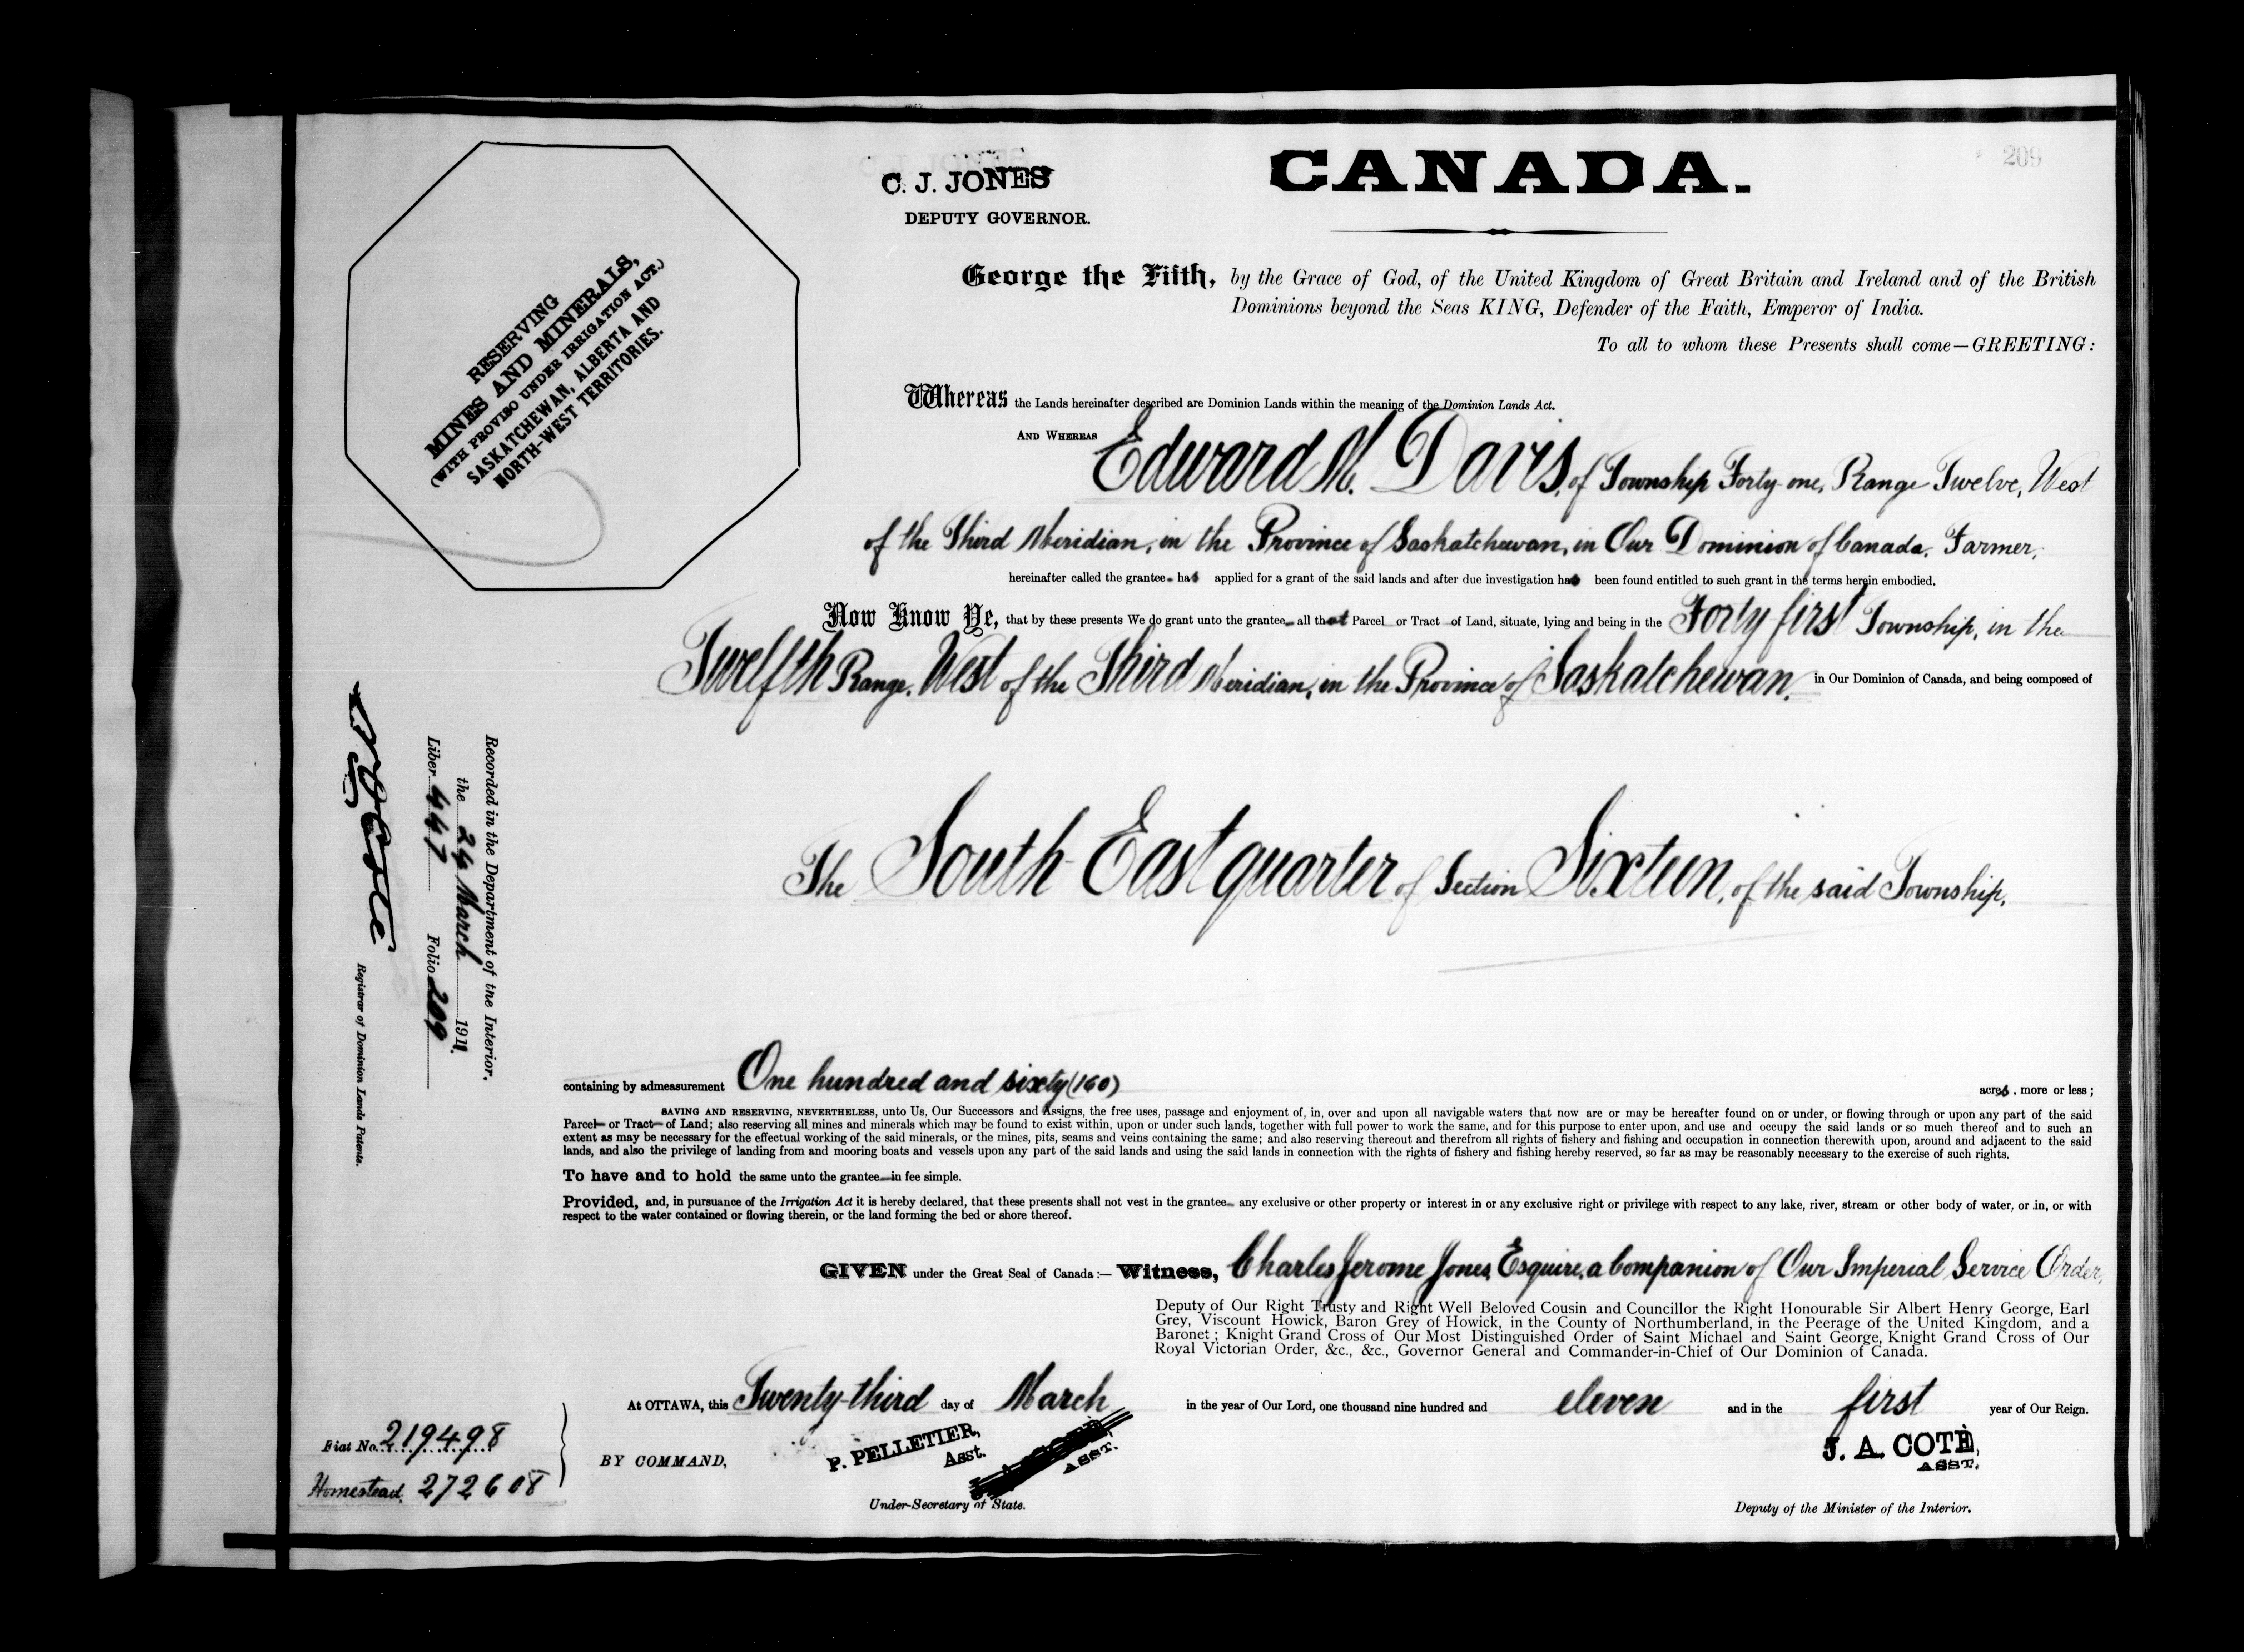 209
C. J. JONES
DEPUTY GOVERNOR.
CANADA.
RESERVING
MINES AND MINERALS,
(WITH PROVISO UNDER IRRIGATION ACT.)
SASKATCHEWAN, ALBERTA AND
NORTH-WEST TERRITORIES.
George the Fifth, by the Grace of God, of the United Kingdom of Great Britain and Ireland and of the British
Dominions beyond the Seas KING, Defender of the Faith, Emperor of India.
To all to whom these Presents shall come—GREETING:
Whereas the Lands hereinafter described are Dominion Lands within the meaning of the Dominion Lands Act.
AND WHEREAS Edward M. Davis, of Township Forty-one, Range Twelve, West
of the Third Meridian, in the Province of Saskatchewan, in Our Dominion of Canada, Farmer,
hereinafter called the grantee has applied for a grant of the said lands and after due investigation has been found entitled to such grant in the terms herein embodied.
Now Know Ye, that by these presents We do grant unto the grantee all that Parcel or Tract of Land, situate, lying and being in the Forty first Township, in the
Twelfth Range, West of the Third Meridian, in the Province of Saskatchewan, in Our Dominion of Canada, and being composed of
The South East quarter of Section Sixteen, of the said Township,
containing by admeasurement One hundred and sixty (160) acres, more or less;
SAVING AND RESERVING, NEVERTHELESS, unto Us, Our Successors and Assigns, the free uses, passage and enjoyment of, in, over and upon all navigable waters that now are or may be hereafter found on or under, or flowing through or upon any part of the said
Parcel or Tract of Land; also reserving all mines and minerals which may be found to exist within, upon or under such lands, together with full power to work the same, and for this purpose to enter upon, and use and occupy the said lands or so much thereof and to such an
extent as may be necessary for the effectual working of the said minerals, or the mines, pits, seams and veins containing the same; and also reserving thereout and therefrom all rights of fishery and fishing and occupation in connection therewith upon, around and adjacent to the said
lands, and also the privilege of landing from and mooring boats and vessels upon any part of the said lands and using the said lands in connection with the rights of fishery and fishing hereby reserved, so far as may be reasonably necessary to the exercise of such rights.
To have and to hold the same unto the grantee in fee simple.
Provided, and, in pursuance of the Irrigation Act it is hereby declared, that these presents shall not vest in the grantee any exclusive or other property or interest in or any exclusive right or privilege with respect to any lake, river, stream or other body of water, or in, or with
respect to the water contained or flowing therein, or the land forming the bed or shore thereof.
GIVEN under the Great Seal of Canada:— Witness, Charles Jerome Jones, Esquire, a Companion of Our Imperial Service Order,
Deputy of Our Right Trusty and Right Well Beloved Cousin and Councillor the Right Honourable Sir Albert Henry George, Earl
Grey, Viscount Howick, Baron Grey of Howick, in the County of Northumberland, in the Peerage of the United Kingdom, and a
Baronet; Knight Grand Cross of Our Most Distinguished Order of Saint Michael and Saint George, Knight Grand Cross of Our
Royal Victorian Order, &c., &c., Governor General and Commander-in-Chief of Our Dominion of Canada.
At OTTAWA, this Twenty-third day of March in the year of Our Lord, one thousand nine hundred and eleven and in the first year of Our Reign.
BY COMMAND,
P. PELLETIER,
Asst.
ASST.
Under-Secretary of State.
J. A. COTÉ,
ASST.
Deputy of the Minister of the Interior.
Recorded in the Department of the Interior,
the 24 March 1911.
Liber 447 Folio 209
N O Coté
Registrar of Dominion Lands Patents.
Fiat No. 219498
Homestead. 272608